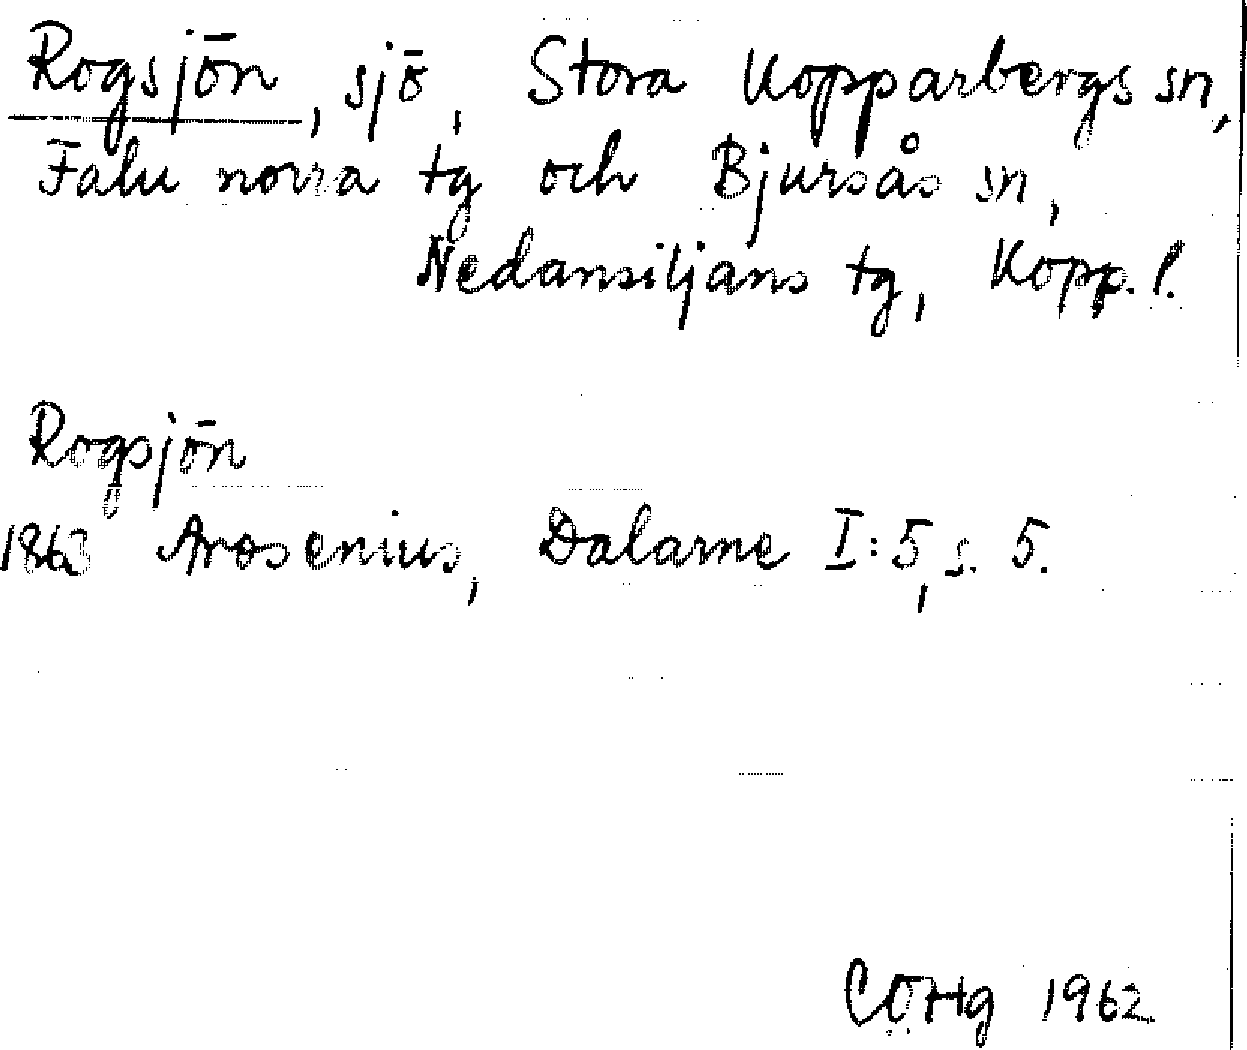 Rogsjön, sjö, Stora Kopparbergs sn,
Falu norra tg och Bjursås sn,
Nedansiljans tg, Kopp. l.
Rogsjön
1863 Arosenius, Dalarne I:5, s. 5.
CÖHg 1962